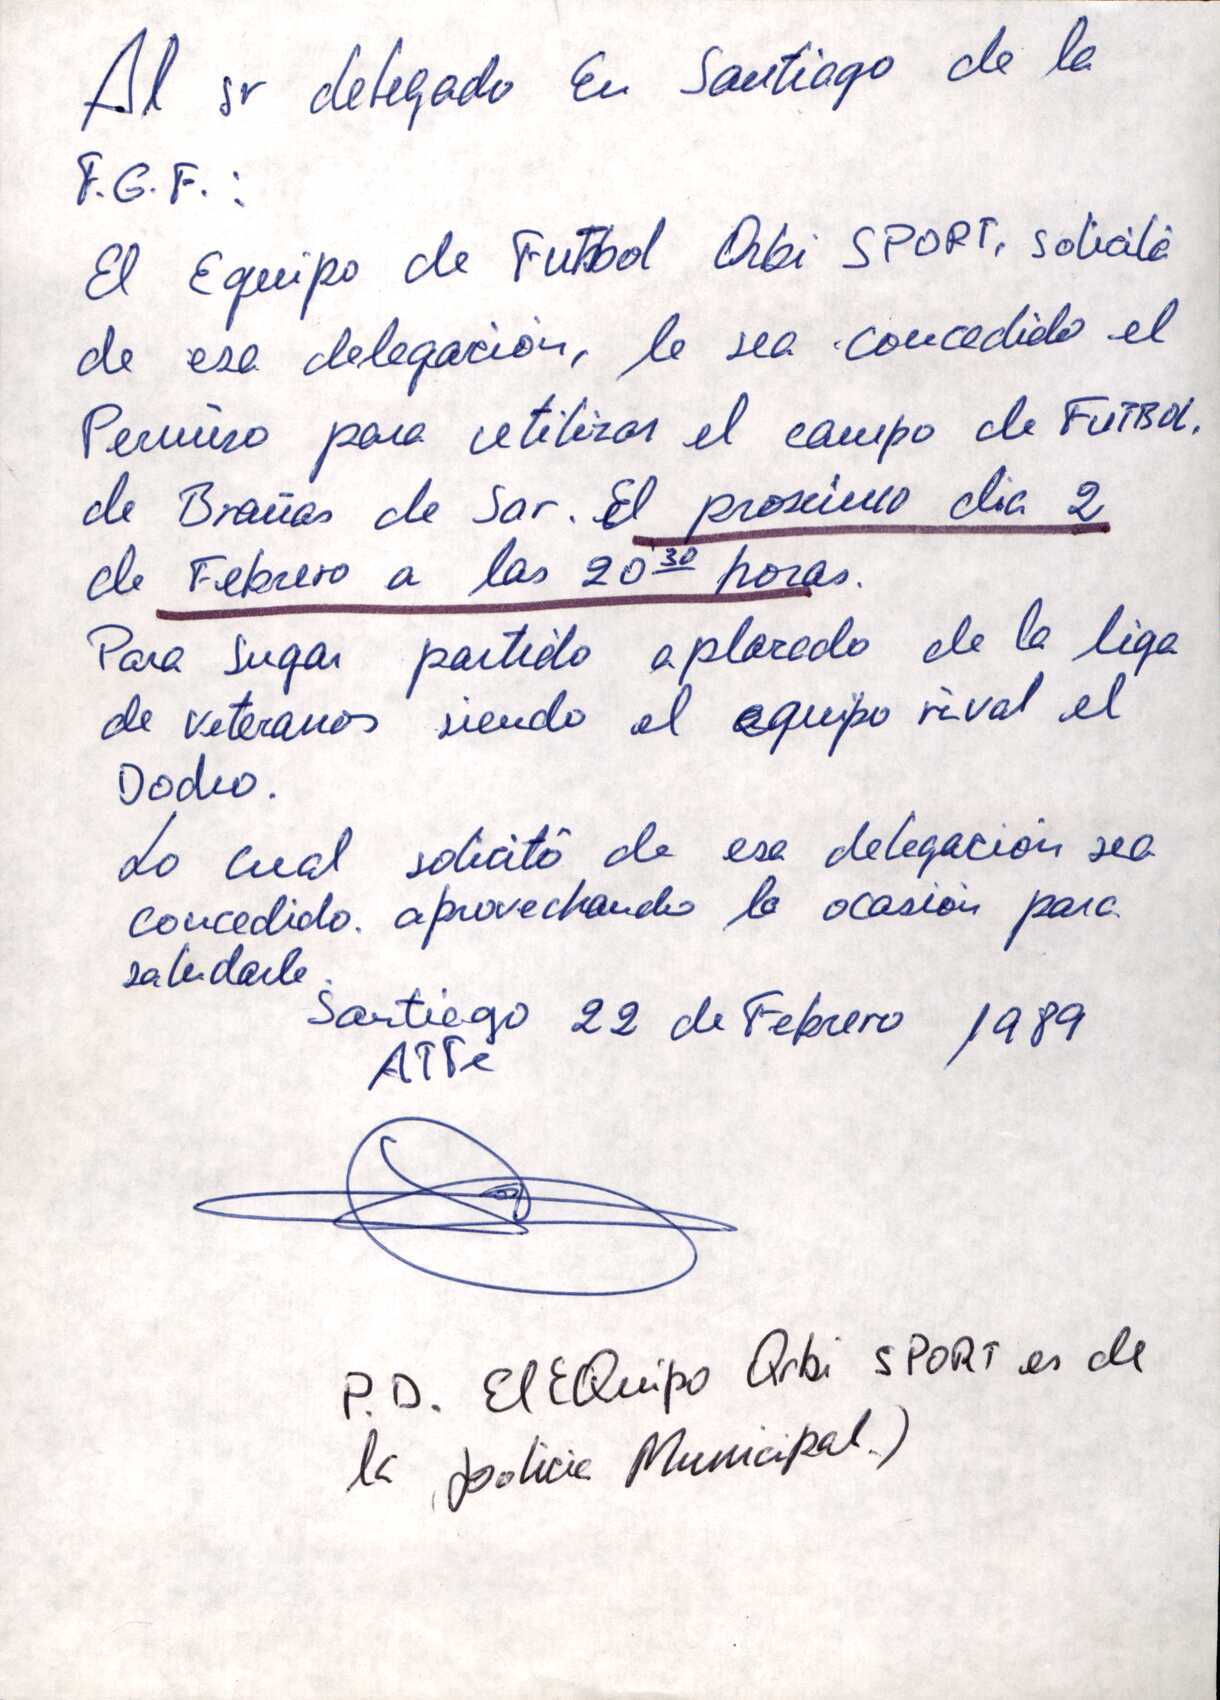 Al sr delegado En Santiago de la
F.G.F. :
El Equipo de Futbol Orbi SPORT, solicitá
de esa delegación, le sea concedido el
Permiso para utilizar el campo de FUTBOL.
de Brañas de Sar. El proximo dia 2
de Febrero a las 20 30 horas.
Para Jugar partido aplazado de la liga
de veteranos siendo el equipo rival el
Dodro.
Lo cual solicitó de esa delegación sea
concedido. aprovechando la ocasión para
saludarle.
Santiago 22 de Febrero 1989
ATTe
P.D. El EQuipo Orbi SPORT es de
la policia Municipal.)